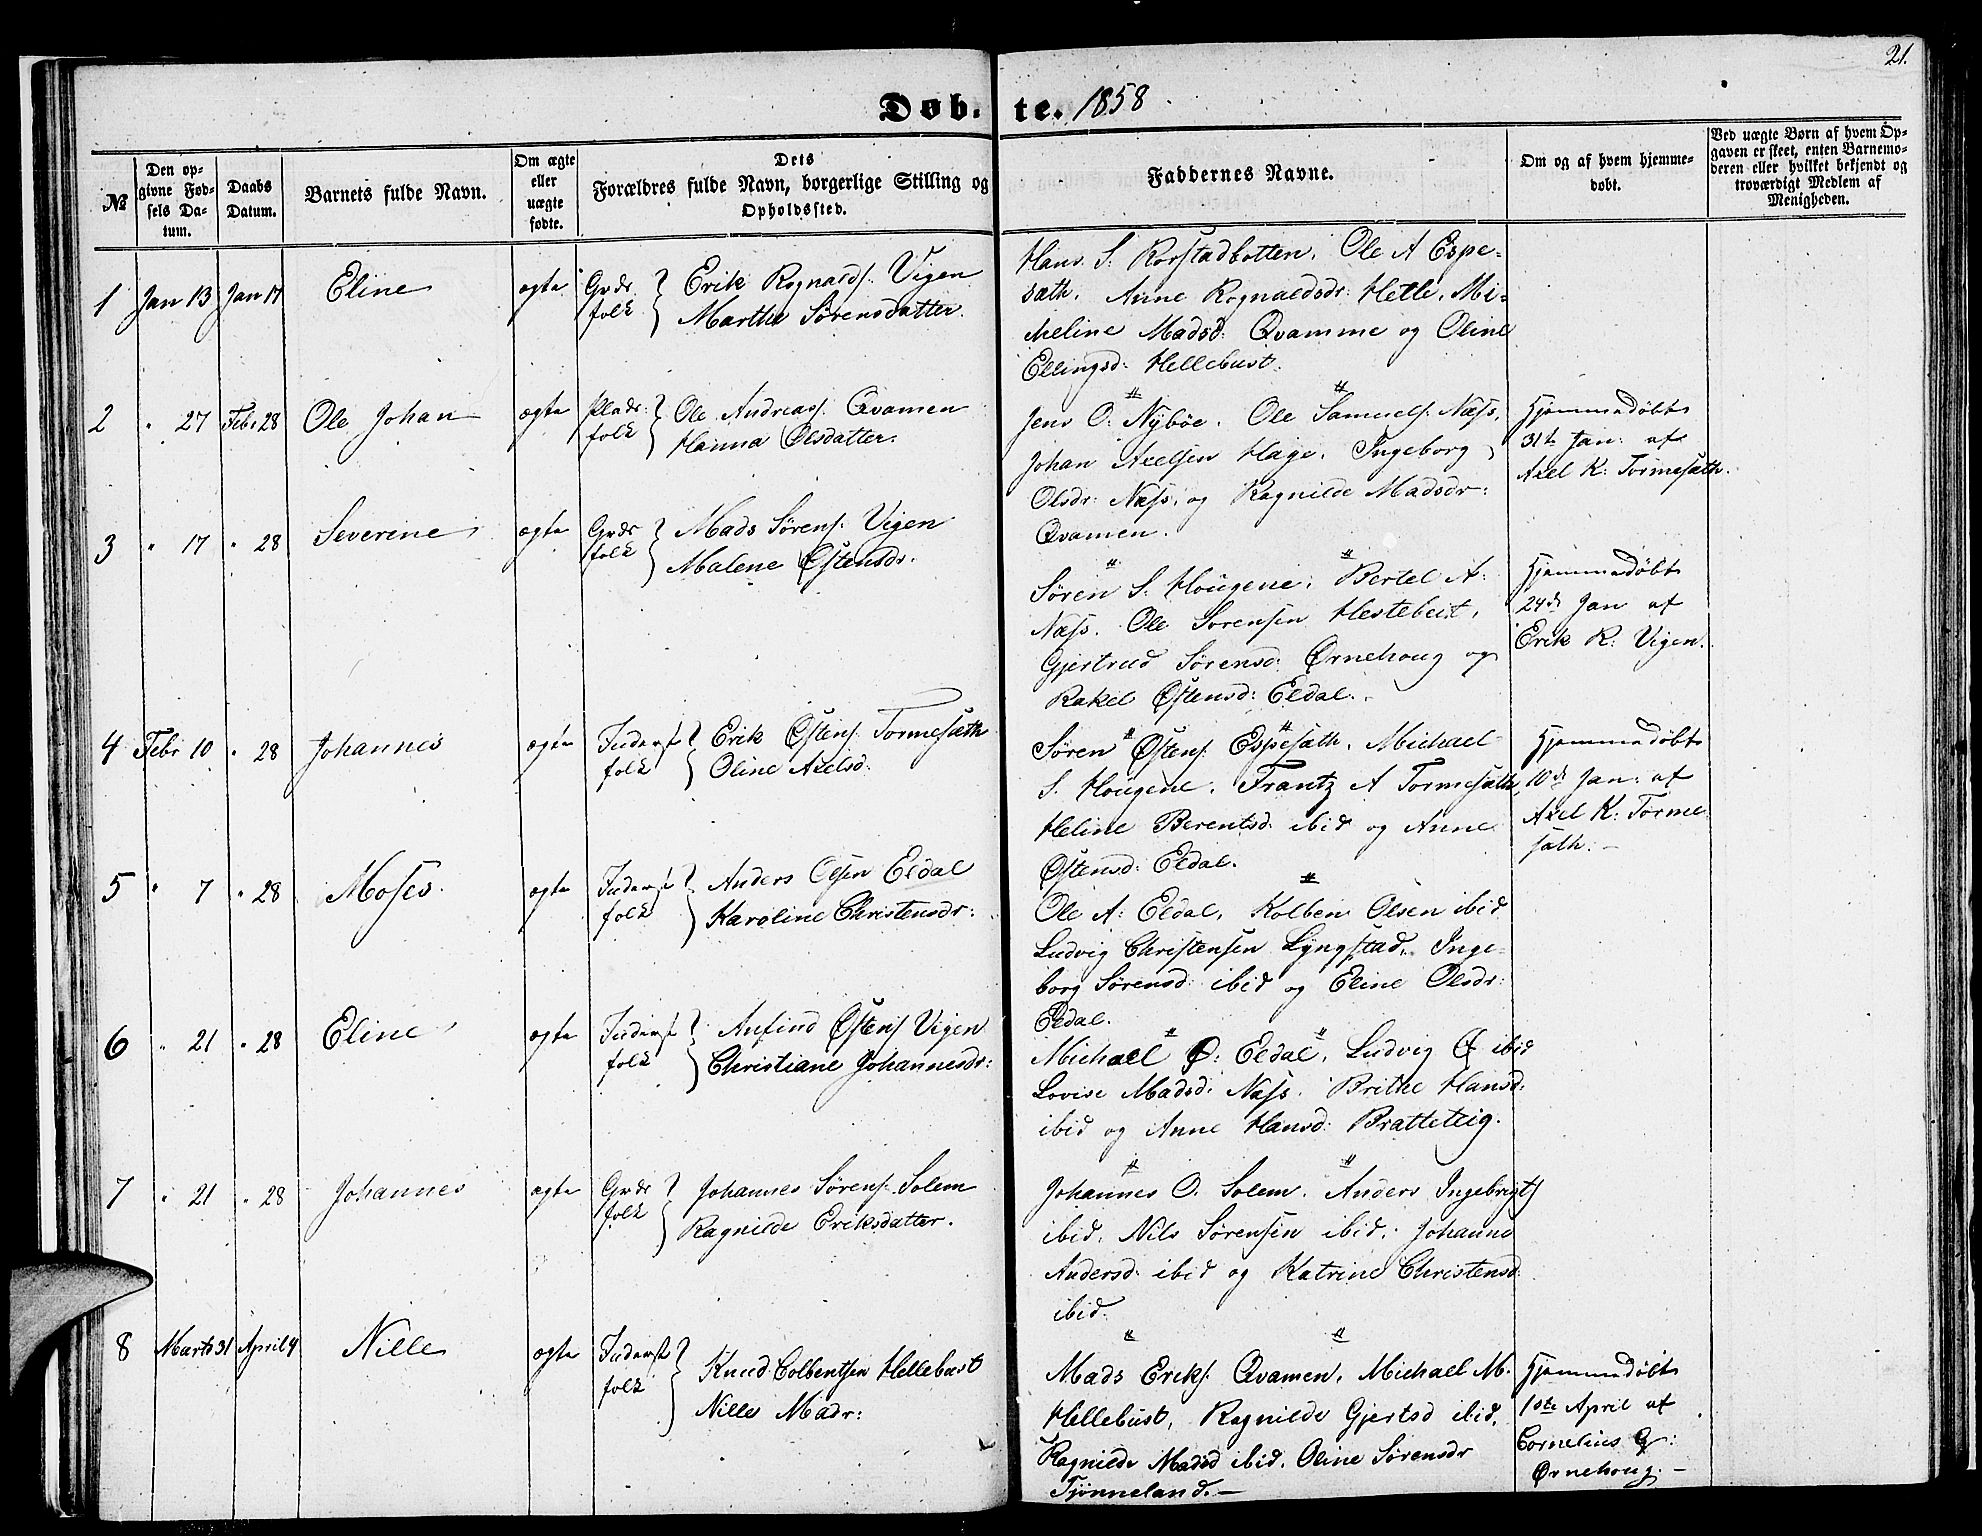 21.
Døb- te. 1858
№
Den op-
givne Fød-
sels Da-
tum.
Daabs
Datum.
Barnets fulde Navn.
Om ægte
eller
uægte
fødte.
Dets
Forældres fulde Navn, borgerlige Stilling og
Opholdssted.
Faddernes Navne.
Om og af hvem hjemme-
døbt.
Ved uægte Børn af hvem Op-
gaven er skeet, enten Barnemo-
deren eller hvilket bekjendt og
troværdigt Medlem af
Menigheden.
1 Jan 13 Jan 17 Eline ægte Grdr folk Erik Rognalds. Vigen
Marthe Sørensdatter.
Hans S. Rørstadbotten. Ole A Espe-
sæth. Anne Rognaldsdr: Helle. Mi-
cheline Madsd: Qvamme og Oline
Ellingsd: Hellebust.
2 " 27 Febr 28 Ole Johan ægte Pladr: folk Ole Andreass. Qvamen
Hanna Olsdatter.
Jens O. Nybøe. Ole Samuels. Næss.
Johan Axelsen Hage. Ingeborg
Olsdr: Næss. og Ragnilde Madsdr:
Qvamen.
Hjemmedøbt
31te Jan: af
Axel K: Tormesæth.
3 " 17 " 28 Severine ægte Grdr folk Mads Sørens. Vigen
Malene Østensdr.
Søren S. Hougene. Bertel A:
Næss. Ole Sørensen Hestebeit.
Gjertrud Sørensd: Ørnehoug og
Rakel Østensd: Eldal.
Hjemmedøbt
24de Jan af
Erik R: Vigen.
4 Febr 10 " 28 Johannes ægte Inderst folk Erik Østens. Tormesæth
Oline Axelsd.
Søren Østens. Espesæth. Michael
S. Hougene. Frantz A Tormesæth,
Heline Berentsd. ibid og Anne
Østensd: Eldal.
Hjemmedøbt
10de Jan: af
Axel K: Torme
sæth. -
5 " 7 " 28 Moses. ægte Inderst folk Anders Olsen Eldal
Karoline Christensdr:
Ole A: Eldal. Kolben Olsen ibid
Ludvig Christensen Lyngstad. Inge-
borg Sørensd: ibid og Eline Olsdr:
Eldal.
6 " 21 " 28 Eline ægte Inderst folk Anfind Østens Vigen
Christiane Johannesdr:
Michael Ø: Eldal. Ludvig Ø ibid
Lovise Madsd: Næss. Brithe Hansd:
ibid og Anne Hansd: Bratteteig.
7 " 21 " 28 Johannes ægte Grdr folk Johannes Sørens. Solem
Ragnilde Eriksdatter.
Johannes O. Solem. Anders Ingebrigts
ibid. Nils Sørensen ibid. Johanne
Andersd: ibid og Katrine Christensd:
ibid.
8 Marts 31 April 4 Nille ægte Inderst folk Knud Colbentsen Hellebust
Nille Madr:
Mads Eriks. Qvamen. Michael M.
Hellebust. Ragnilde Gjertsd ibid.
Ragnilde Madsd ibid. Oline Sørensdr
Tjønneland. -
Hjemmedøbt
1ste April af
Cornelius G:
Ørnehoug. -